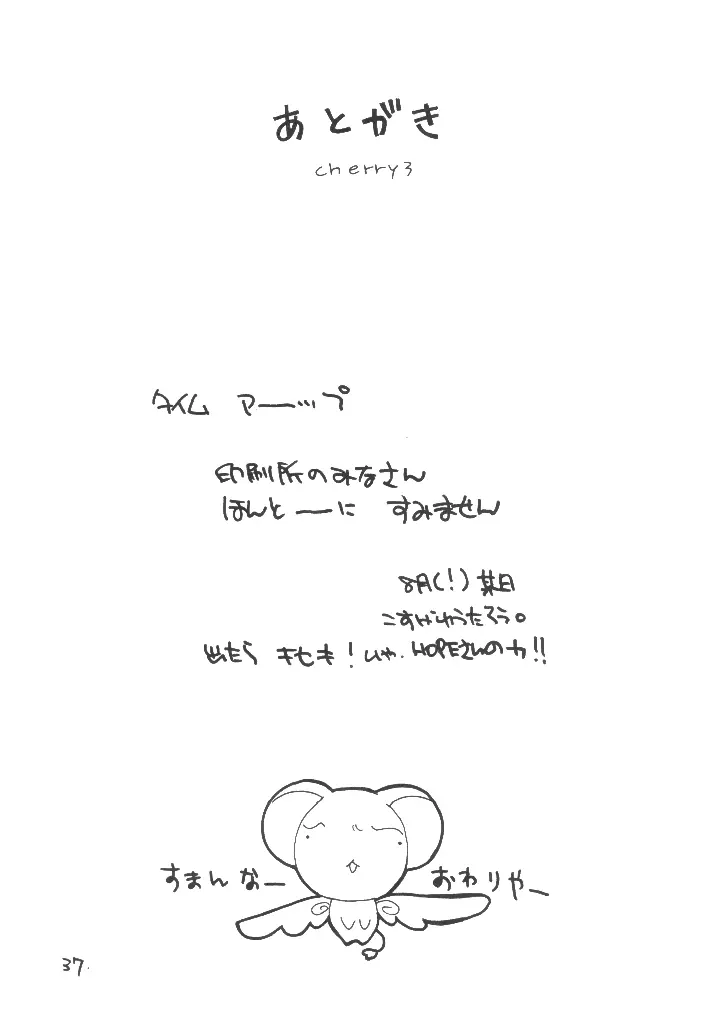 あとがき
cherry3
タイム アーップ
印刷所のみなさん
ほんとーに すみません
8月(!)某日
こすげゆうたろう。
出たら キセキ!いや、HOPEさんの力!!
すまんなー
おわりやー
37.